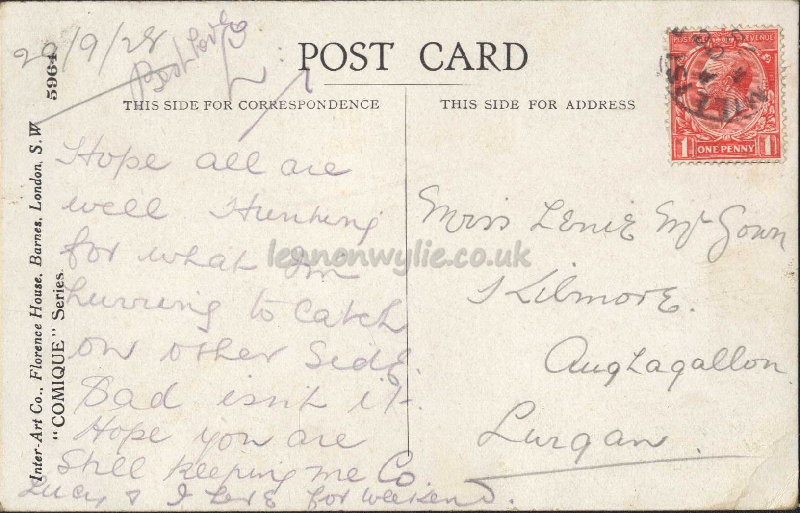 20/9/28
Best Love
POST CARD
THIS SIDE FOR CORRESPONDENCE
THIS SIDE FOR ADDRESS
POSTAGE REVENUE
ONE PENNY
1 1
Inter-Art Co., Florence House, Barnes, London, S.W.
"COMIQUE" Series.
5964
Hope all are
well Hunting
for what I'm
hurring to catch
on other side.
Bad isn't it.
Hope you are
still keeping me Co.
Lucy & I here for weekend.
Miss Lenie McGown
Kilmore.
Aughagallon
Lurgan.
lennonwylie.co.uk